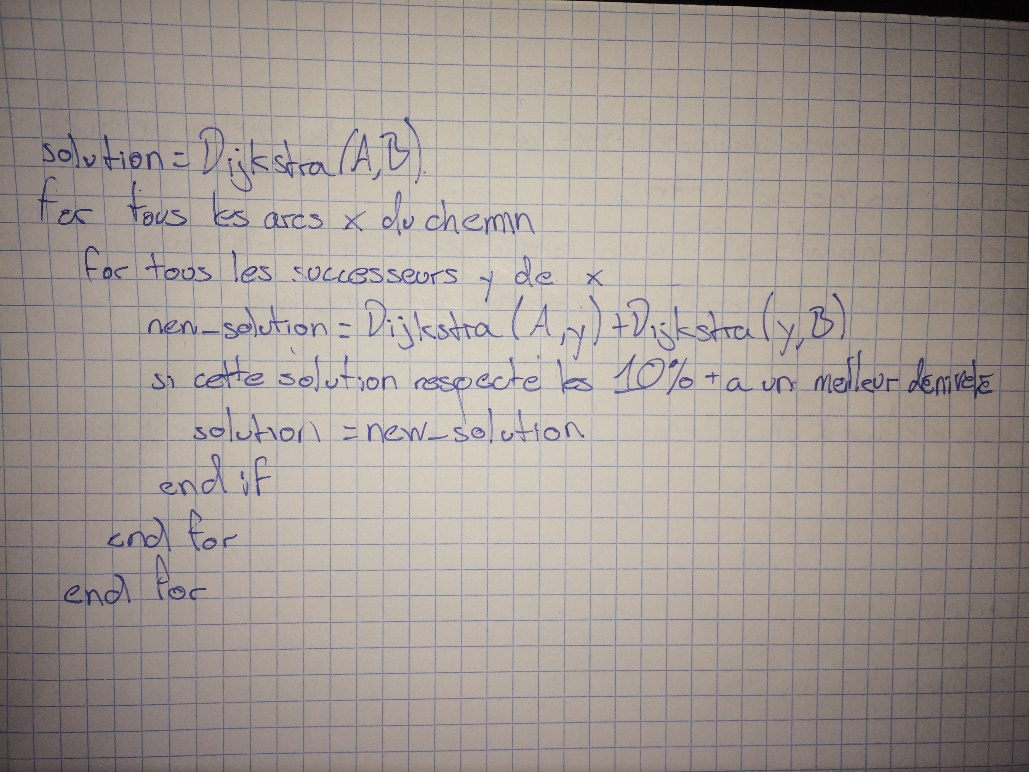 solution = Dijkstra (A,B)
for tous les arcs x du chemin
for tous les successeurs y de x
new_solution = Dijkstra (A,y) + Dijkstra (y,B)
si cette solution respecte les 10% + a un meilleur dénivelé
solution = new_solution
end if
end for
end for